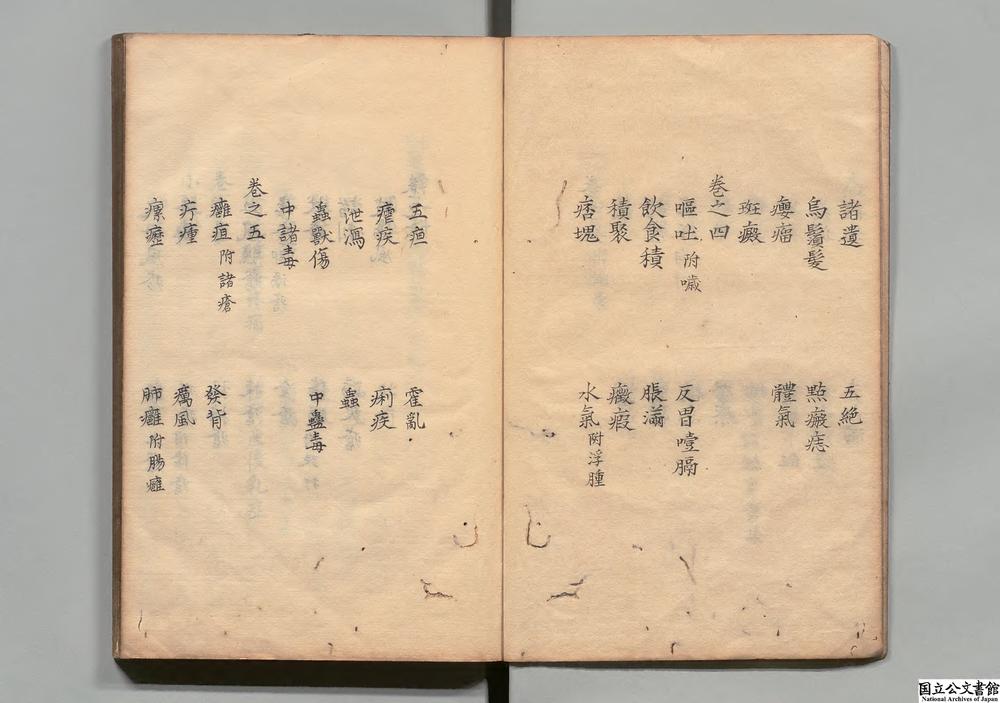 諸遺 五絶
烏鬚髮 點癜痣
癭瘤 體氣
斑癜
卷之四
嘔吐附噦 反胃噎膈
飲食積 脹滿
積聚 癥瘕
痞塊 水氣附浮腫
五疸 霍亂
瘧疾 痢疾
泄瀉
蟲獸傷 蠱
中諸毒 中蠱毒
卷之五
癰疽附諸瘡 發背
疔瘇 癘風
瘰癧 肺癰附腸癰
国立公文書館
National Archives of Japan